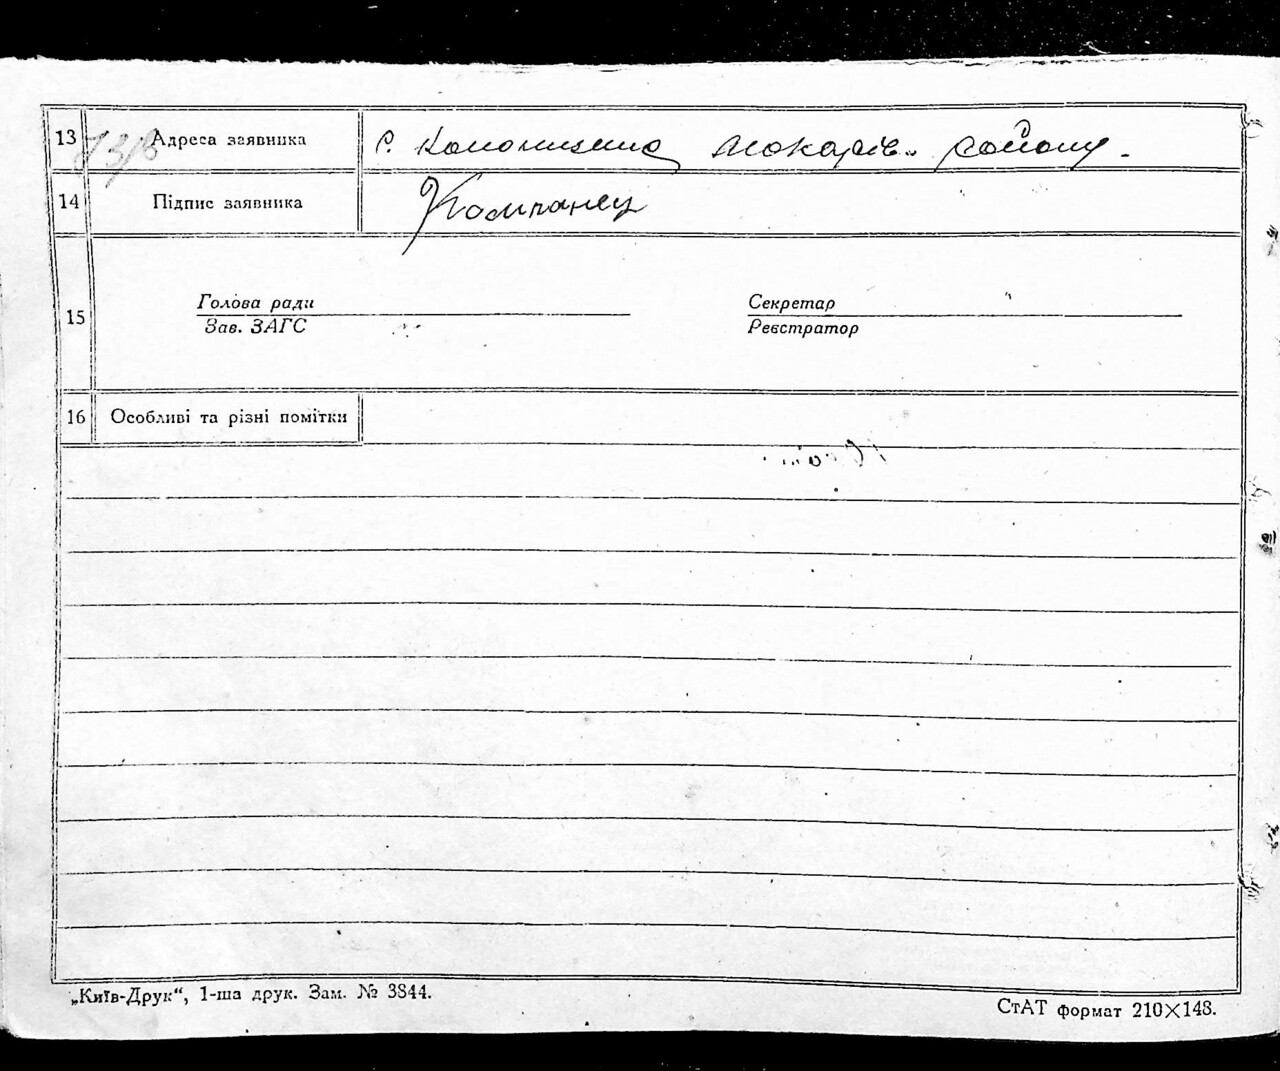 13 Адреса заявника с. Колонщина Макарів. району.
14 Підпис заявника Компанец
15 Голова ради Секретар
Зав. ЗАГС Реєстратор
16 Особливі та різні помітки
„Київ-Друк“, 1-ша друк. Зам. № 3844.
СтАТ формат 210×148.